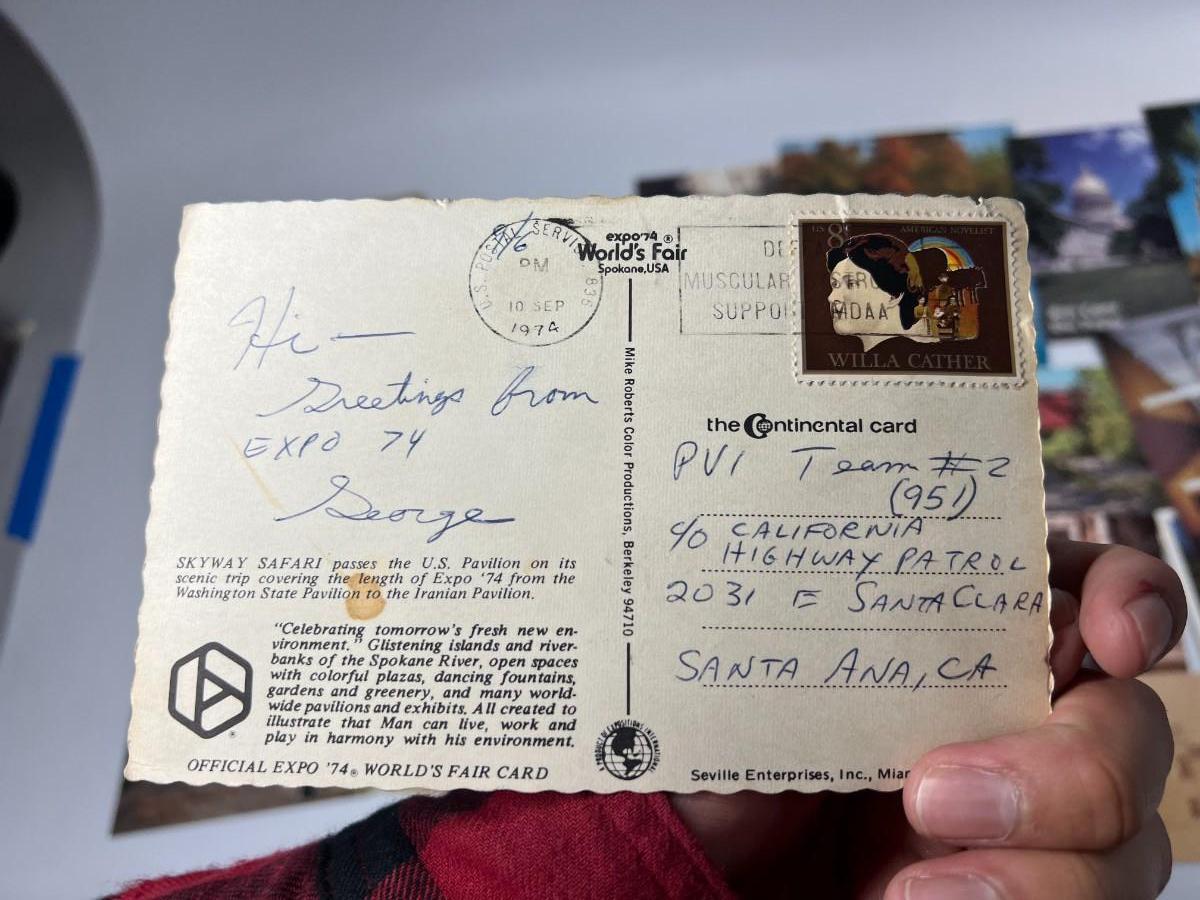 9/6
U.S. POSTAL SERVICE 836
PM
10 SEP
1974
expo'74 ®
World's Fair
Spokane, USA
Hi —
Greetings from
EXPO 74
George
SKYWAY SAFARI passes the U.S. Pavilion on its
scenic trip covering the length of Expo '74 from the
Washington State Pavilion to the Iranian Pavilion.
"Celebrating tomorrow's fresh new en-
vironment." Glistening islands and river-
banks of the Spokane River, open spaces
with colorful plazas, dancing fountains,
gardens and greenery, and many world-
wide pavilions and exhibits. All created to
illustrate that Man can live, work and
play in harmony with his environment.
®
OFFICIAL EXPO '74® WORLD'S FAIR CARD
Mike Roberts Color Productions, Berkeley 94710
MUSCULAR
SUPPO MDAA
US 8
AMERICAN NOVELIST
WILLA CATHER
the Continental card
PVI Team #2
(951)
c/o CALIFORNIA
HIGHWAY PATROL
2031 E SANTA CLARA
SANTA ANA, CA
Seville Enterprises, Inc., Miam